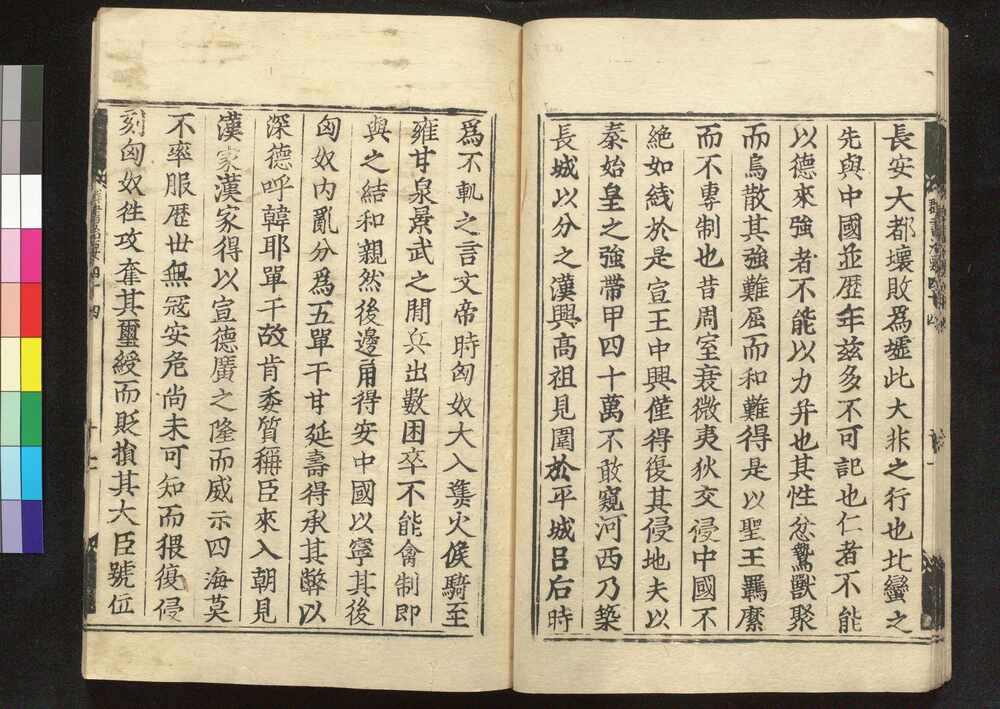 長安大都壞敗為墟此大非之行也北蠻之
先與中國並歷年茲多不可記也仁者不能
以德來強者不能以力并也其性忿鷙獸聚
而鳥散其強難屈而和難得是以聖王羈縻
而不專制也昔周室衰微夷狄交侵中國不
絕如綫於是宣王中興僅得復其侵地夫以
秦始皇之強帶甲四十萬不敢窺河西乃築
長城以分之漢興高祖見圍於平城呂后時
為不軌之言文帝時匈奴大入㷭火候騎至
雍甘泉景武之間兵出數困卒不能禽制即
與之結和親然後邊甬得安中國以寧其後
匈奴內亂分為五單于甘延壽得承其弊以
深德呼韓耶單于故肯委質稱臣來入朝見
漢家漢家得以宣德廣之隆而威示四海莫
不率服歷世無冦安危尚未可知而猥復侵
刻匈奴徃攻奪其璽綬而貶損其大臣號位
群書治要四十四